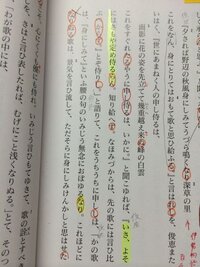 『夕されば野辺の秋風身にしみてうづら鳴くなり深草の里
これをなん、身にとりてはおもて歌と思ひ給ふる』と言はれしを、俊恵また
『世にあまねく人の申し侍るは、
面影に花の姿を先立てて幾重越え来ぬ峰の白雲
これをすぐれたるやうに申し侍るは、いかに』と聞こゆれば、『いさ、よそ
にはさもや定め侍るらん。知り給へず。なほみづからは、先の歌には言ひ比
とぞ侍りし」と語りて、これをうちうちに申ししは、「かの歌
は、『身にしみて』といふ腰の句のいみじう無念におぼゆるなり。これほどに
なりぬる歌は、景気を言ひ流して、ただそらに身にしみけんかしと思はせた
心にくくも優にも侍れ。いみじう言ひもてゆきて、歌の詮とすべ
さはと言ひ表したれば、むげにこと浅くなりぬる」とて、そのつ
わが歌の中には、